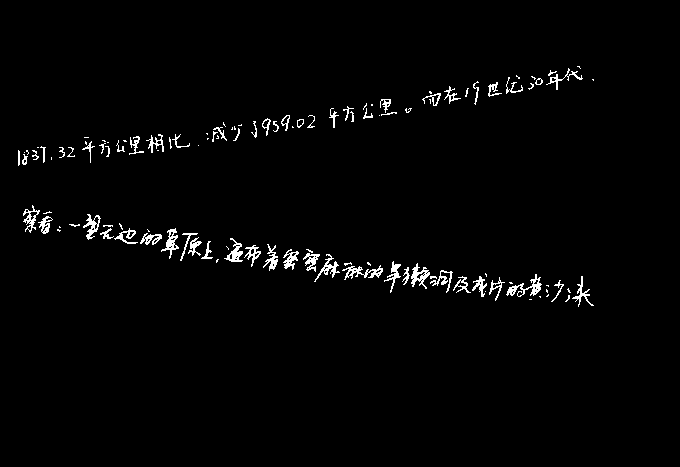 1837.32平方公里相比,减少了959.02平方公里。而在19世纪30年代,
察看:一望无边的草原上,遍布着密密麻麻的旱獭洞及成片的黄沙梁